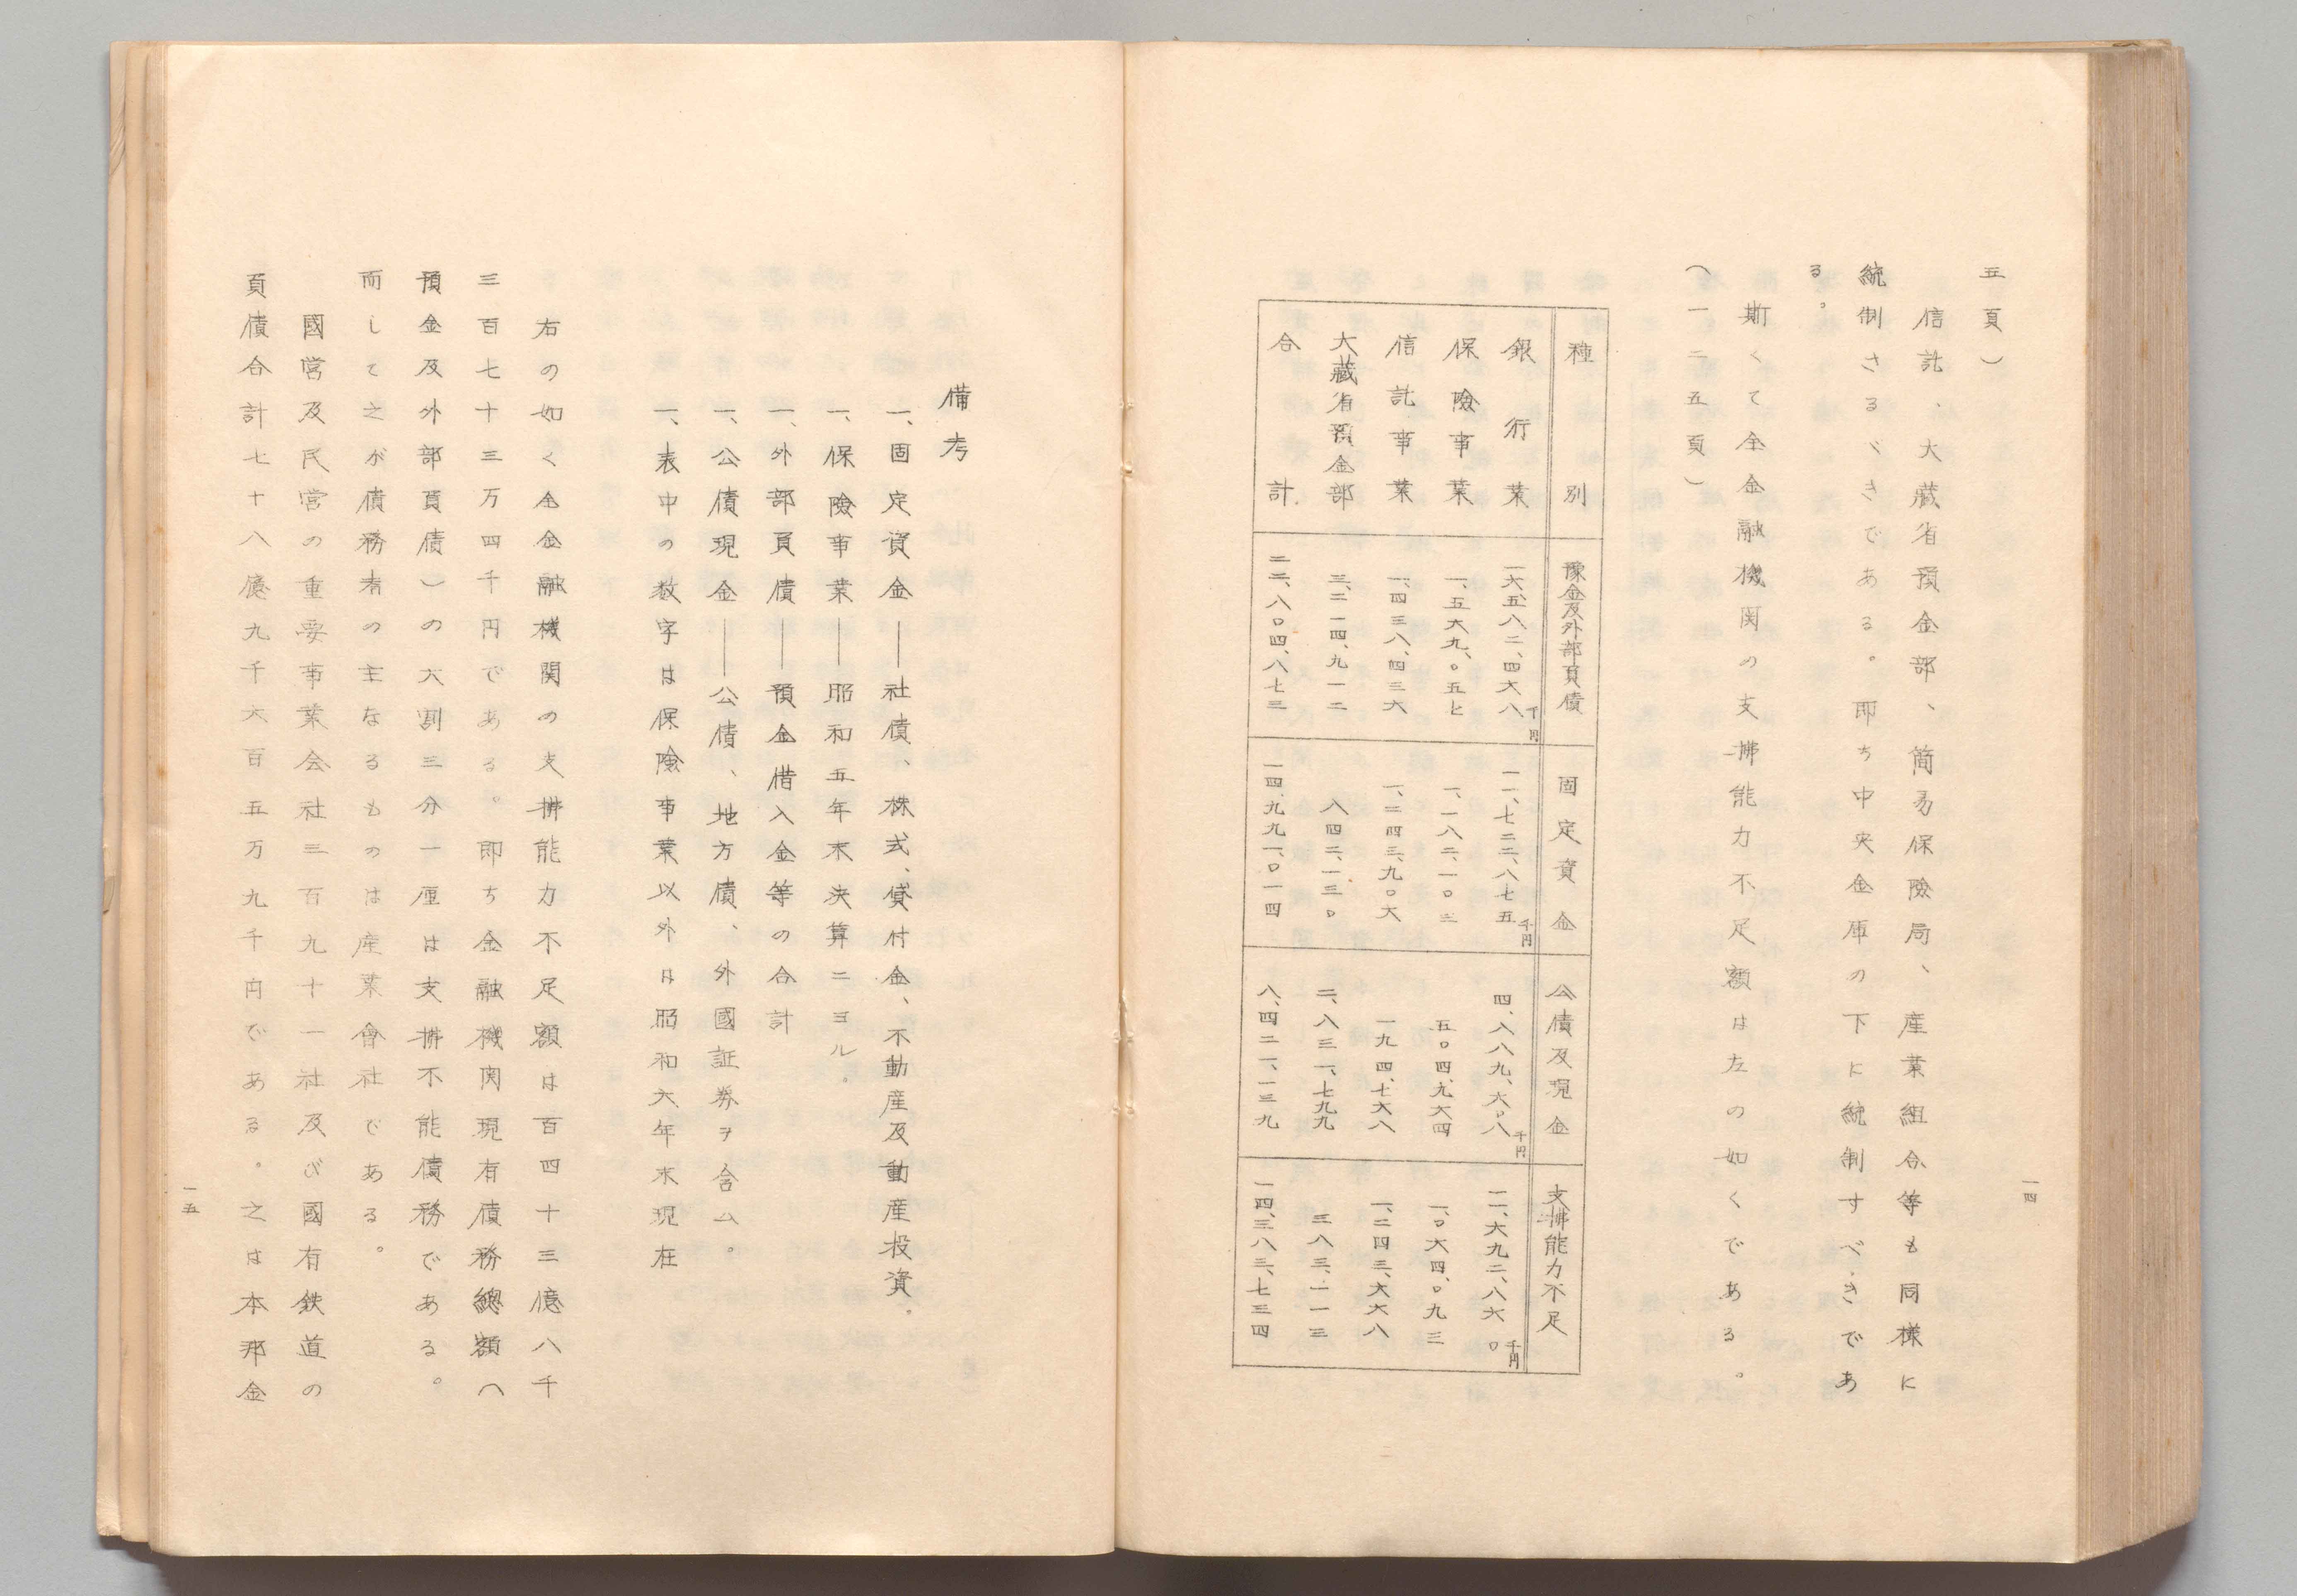 一四
五頁）
信託、大藏省預金部、簡易保險局、産業組合等も同様に
統制さるべきである。即ち中央金庫の下に統制すべきであ
る。
斯くて全金融機関の支拂能力不足額は左の如くである。
（一二五頁）
種別 豫金及外部負債 固定資金 公債及現金 支拂能力不足
銀行業 一六、五八二、四六八千円 一一、七二二、八七五千円 四、八八九、六〇八千円 一一、六九二、八六〇千円
保險事業 一、五六九、〇五七 一、一八二、一〇三 五〇四、九六四 一、〇六四、〇九三
信託事業 一、四三八、四三六 一、二四三、九〇六 一九四、七六八 一、二四三、六六八
大藏省預金部 三、二一四、九一二 八四二、一三〇 二、八三一、七九九 三八三、一一三
合計 二二、八〇四、八七三 一四、九九一、〇一四 八、四二一、一三九 一四、三八三、七三四
備考
一、固定資金――社債、株式、貸付金、不動産及動産投資。
一、保險事業――昭和五年末決算ニヨル。
一、外部負債――預金借入金等の合計
一、公債現金――公債、地方債、外國証券ヲ含ム。
一、表中の数字は保險事業以外は昭和六年末現在
右の如く全金融機関の支拂能力不足額は百四十三億八千
三百七十三万四千円である。即ち金融機関現有債務總額（
預金及外部負債）の六割三分一厘は支拂不能債務である。
而して之が債務者の主なるものは産業會社である。
國営及民営の重要事業会社三百九十一社及び國有鉄道の
負債合計七十八億九千六百五万九千円である。之は本邦金
一五